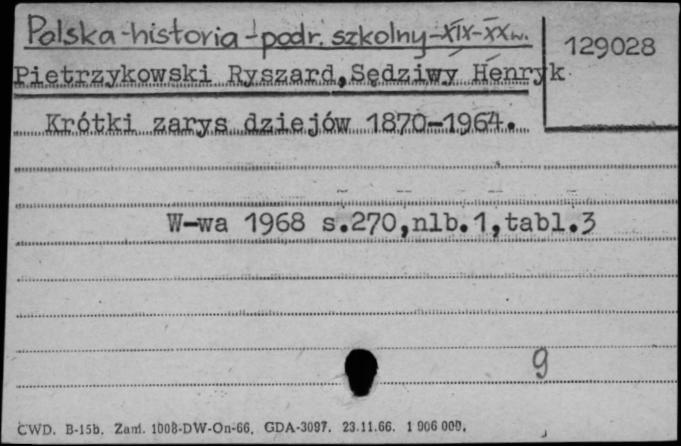 Polska-historia-podr. szkolny-XIX-XXw.
129028
Pietrzykowski Ryszard, Sędziwy Henryk
Krótki zarys dziejów 1870-1964.
W-wa 1968 s.270,nlb.1,tabl.3
9
CWD. B-15b. Zam. 1008-DW-On-66. GDA-3097. 23.11.66. 1 906 000.